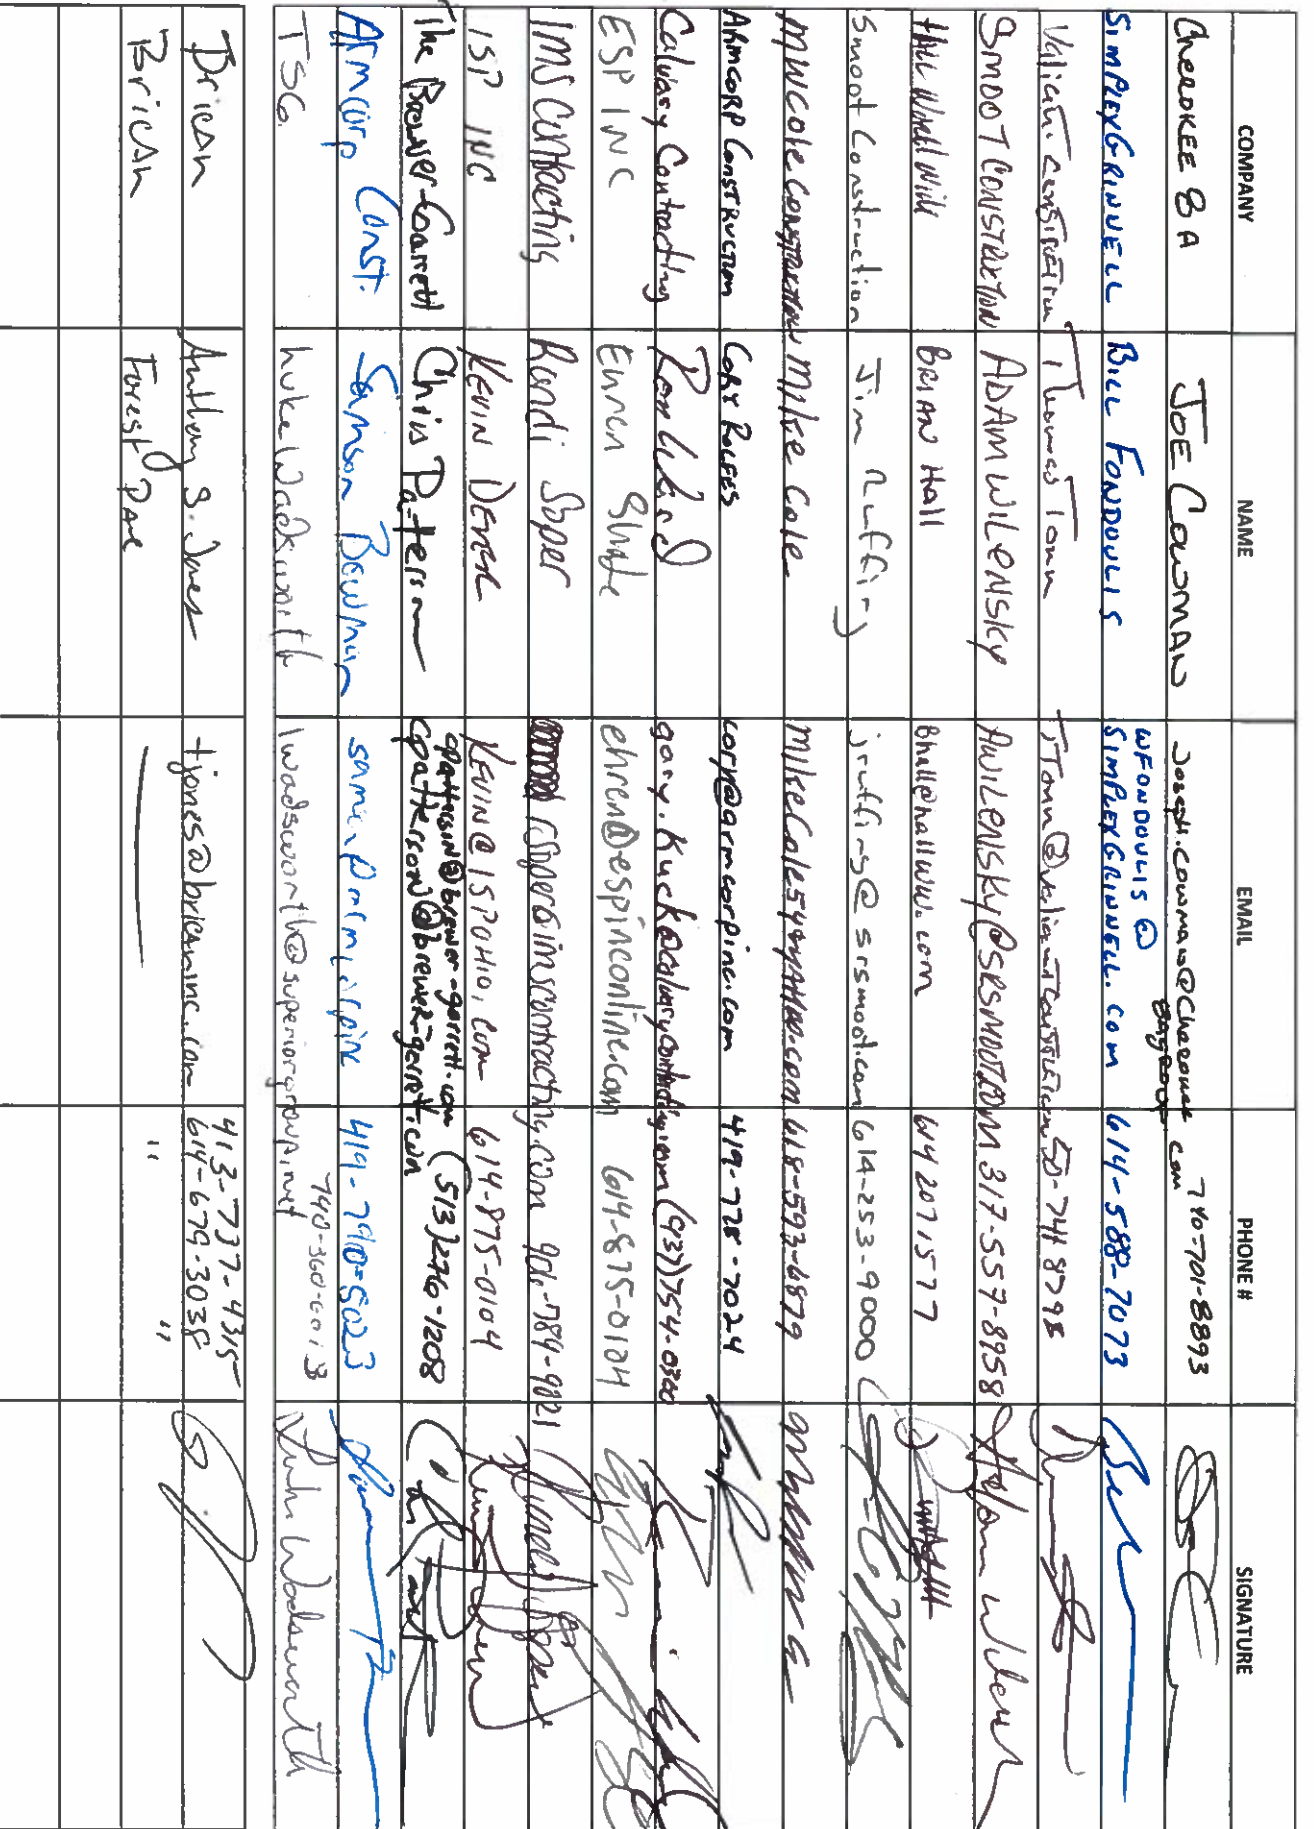 COMPANY NAME EMAIL PHONE # SIGNATURE
CHEROKEE 8A JOE COWMAN Joseph.cowman@Cherokee 8Agroup com 740-701-8893
SIMPLEXGRINNELL BILL FONDOULIS WFONDOULIS @ SIMPLEXGRINNELL.COM 614-588-7073
Thomas Tomn 8798
SMOOT CONSTRUCTION ADAM WILENSKY AWILENSKY@SRSMOOT.COM 317-557-8958
BRIAN Hall Bhall@hallww.com 614 207 1577
Smoot Construction Jim Ruffing jruffing@srsmoot.com 614-253-9000
MWCole CONSTRUCTION Mike Cole 618-593-6879
ARMCORP CONSTRUCTION CORY ROLFES cory@armcorpinc.com 419-778-7024
Calvary Contracting gary.kuck@calvarycontracting.com (937)754-0300
ESP INC Ehren ehren@espinconline.com 614-875-0104
IMS Contracting Randi Soper rsoper@imscontracting.com 901-789-9021
ISP INC KEVIN DEVER KEVIN@ISPOHIO.COM 614-875-0104
The Brewer-Garrett Chris Patterson cpatterson@brewer-garrett.com cpatterson@brewer-garrett.com (513)276-1208
Armcorp Const. Samson Bowman 419-790-5023
TSG Luke Wadsworth lwadsworth@superiorgroup.net 740-360-6013 Luke Wadsworth
Brican Anthony S. Jones tjones@bricaninc.com 413-737-4315 614-679-3038
Brican Forest Dane " "